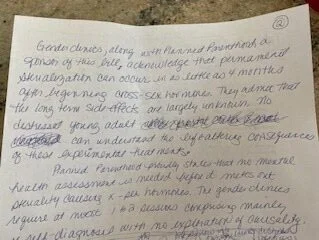 ②
Gender clinics, along with Planned Parenthood, a
sponsor of this bill, acknowledge that permanent
sterilization can occur in as little as 4 months
after beginning cross-sex hormones. They admit that
the long term side effects are largely unknown. No
distressed young adult
can understand the life altering consequences
of these experimental treatments.
Planned Parenthood proudly states that no mental
health assessment is needed before it metes out
sterility causing x-sex hormones. The gender clinics
require at most 1 to 2 sessions comprising mainly
self-diagnosis with no exploration of causality.